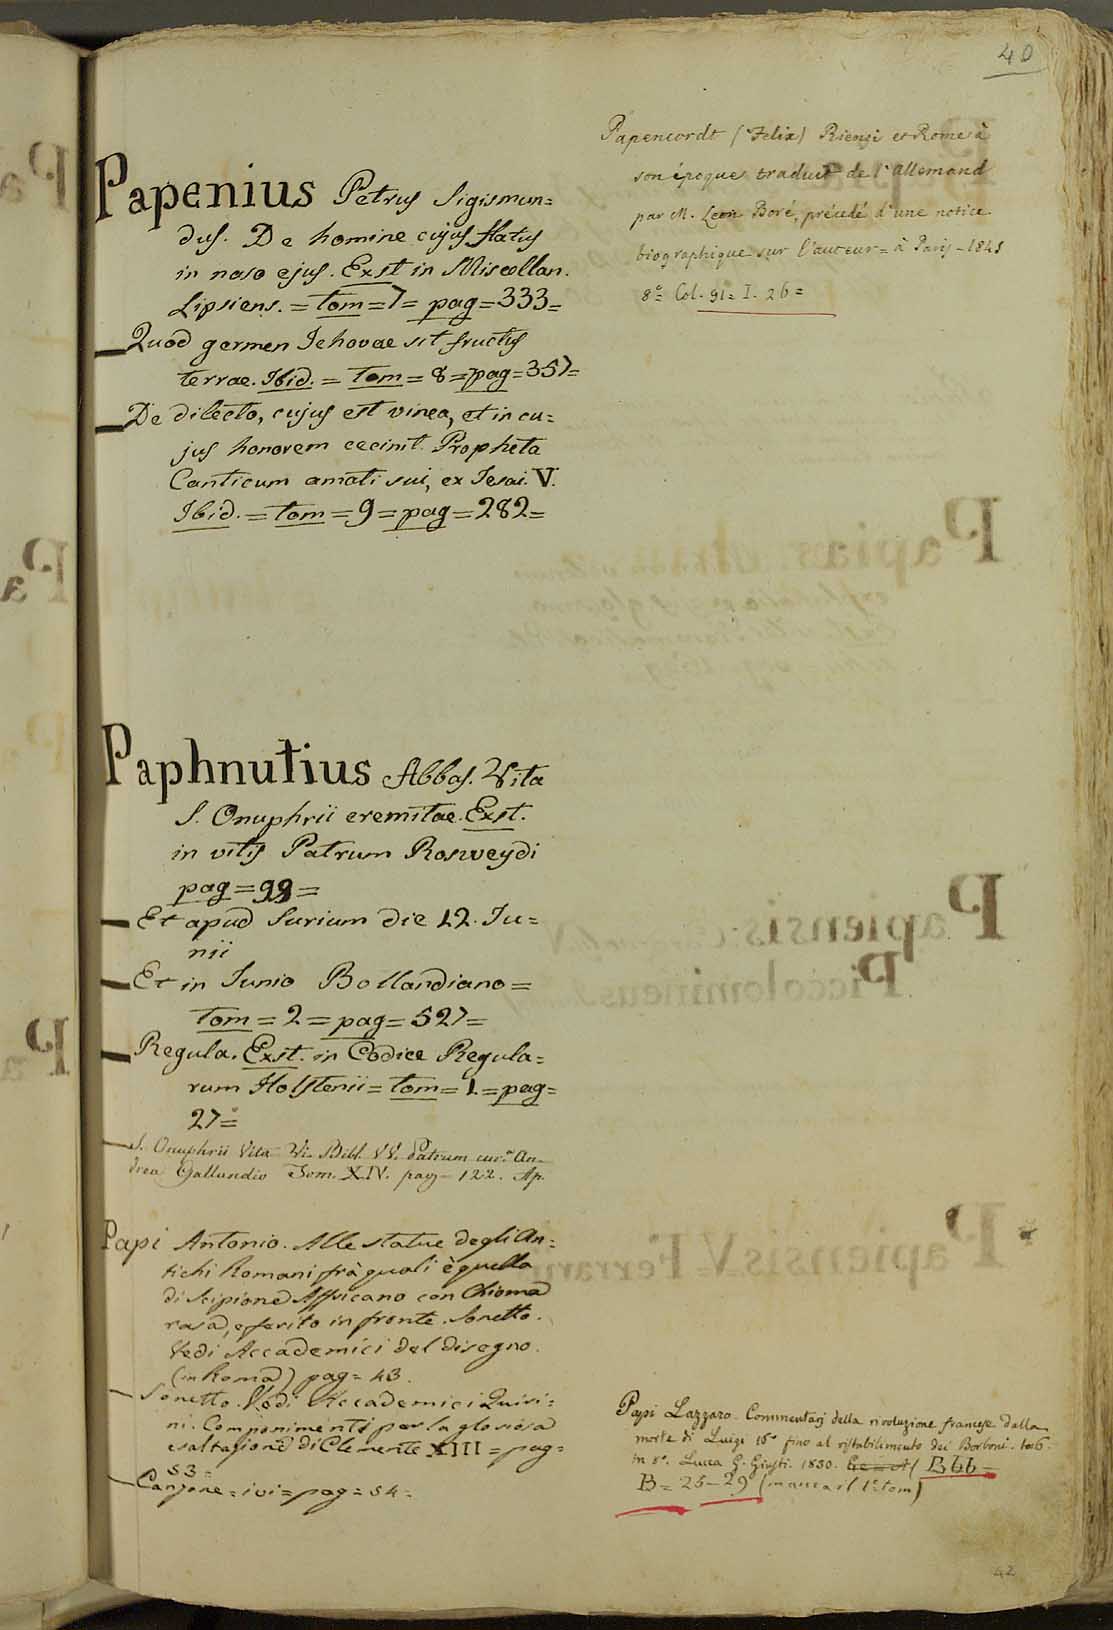 40
Papenius Petrus Sigismun=
dus. De homine cujus flatus
in naso ejus. Exst in Miscellan.
Lipsiens. = tom = 7 = pag = 333 =
Quod germen Jehovae sit fructus
terrae. Ibid. = tom = 8 = pag = 357 =
De dilecto, cujus est vinea, et in cu=
jus honorem cecinit Propheta
Canticum amati sui, ex Jesai. V.
Ibid. = tom = 9 = pag = 282 =
Paphnutius Abbas. Vita
S. Onuphrii eremitae. Exst.
in vitis Patrum Rosweydi
pag = 99 =
Et apud Surium die 12. Ju=
nii
Et in Junio Bollandiano =
tom = 2 = pag = 527 =
Regula. Exst. in Codice Regula=
rum Holstenii = tom = 1 = pag =
27 =
S. Onuphrii Vita Bibl. VV. Patrum cur.e An-
drea Gallandio Tom. XIV. pag = 122. Ap.
Papi Antonio. Alle statue degli An=
tichi Romani frà quali è quella
di Scipione Affricano con Chioma
rasa, e ferito in fronte. Sonetto.
Vedi Accademici del disegno.
(in Roma) pag = 43.
Sonetto. Vedi Accademici Quiri=
ni. Componimenti per la gloriosa
esaltazione di Clemente XIII = pag =
53 =
Canzone = ivi = pag = 54 =
Papencordt (Felix) Rienzi et Rome à
son époque, traduit de l'Allemand
par M. Leon Boré, précédé d'une notice
biographique sur l'auteur = à Paris - 1845
8.° Col. 91 = I. 26 =
Papi Lazzaro. Commentarj della rivoluzione francese dalla
morte di Luigi 16° fino al ristabilimento dei Borboni. to 6.
in 8°. Lucca G. Giusti. 1830. Bbb =
B = 25 - 29 (manca il 1° tom)
42